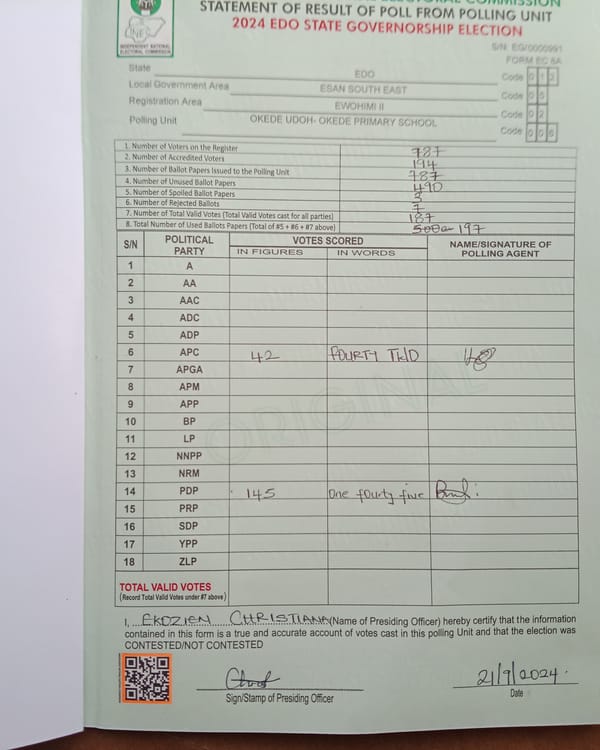 STATEMENT OF RESULT OF POLL FROM POLLING UNIT
2024 EDO STATE GOVERNORSHIP ELECTION
INEC
INDEPENDENT NATIONAL
ELECTORAL COMMISSION
S/N: EG/0000991
FORM EC 8A
State EDO Code 0 1 2
Local Government Area ESAN SOUTH EAST Code 0 5
Registration Area EWOHIMI II Code 0 2
Polling Unit OKEDE UDOH- OKEDE PRIMARY SCHOOL Code 0 0 6
1. Number of Voters on the Register 787
2. Number of Accredited Voters 194
3. Number of Ballot Papers Issued to the Polling Unit 787
4. Number of Unused Ballot Papers 490
5. Number of Spoiled Ballot Papers 3
6. Number of Rejected Ballots 7
7. Number of Total Valid Votes (Total Valid Votes cast for all parties) 187
8. Total Number of Used Ballots Papers (Total of #5 + #6 + #7 above) 197
S/N POLITICAL PARTY VOTES SCORED NAME/SIGNATURE OF POLLING AGENT
IN FIGURES IN WORDS
1 A
2 AA
3 AAC
4 ADC
5 ADP
6 APC 42 FOURTY TWO
7 APGA
8 APM
9 APP
10 BP
11 LP
12 NNPP
13 NRM
14 PDP 145 One fourty five
15 PRP
16 SDP
17 YPP
18 ZLP
ORIGINAL
TOTAL VALID VOTES
(Record Total Valid Votes under #7 above)
I, EKOZIEN CHRISTIANA (Name of Presiding Officer) hereby certify that the information
contained in this form is a true and accurate account of votes cast in this polling Unit and that the election was
CONTESTED/NOT CONTESTED
21/9/2024.
Sign/Stamp of Presiding Officer Date